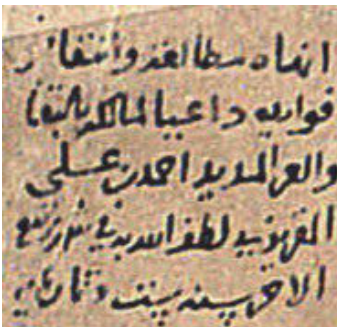 انهاه مطالعة وانتقاء
فوايد داعيا لمالكه بالبقا
والعز المديد احمد بن علي
المقريزي لطف الله به في شهر ربيع
الاخر سنة